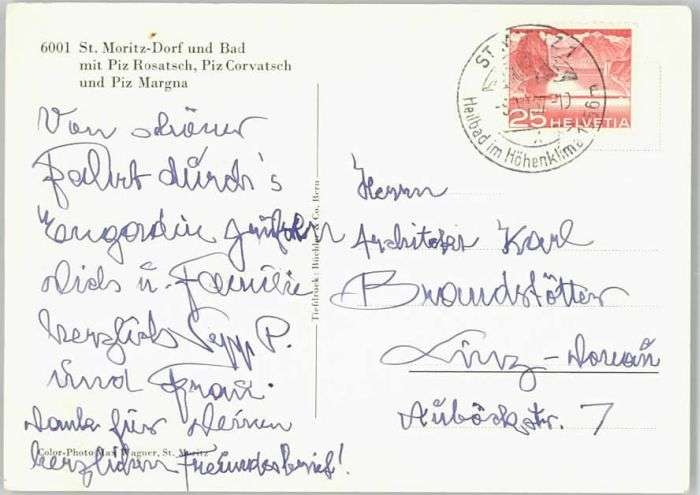 6001 St. Moritz-Dorf und Bad
mit Piz Rosatsch, Piz Corvatsch
und Piz Margna
Von schöner
Fahrt durch's
Engadin grüßen
Dich u. Familie
herzlich Sepp P.
und Frau.
Danke für Deinen
herzlichen Freundesbrief!
Color-Photo Max Wagner, St. Moritz
Tiefdruck: Büchler & Co, Bern
25 HELVETIA
ST.
Heilbad im Höhenklima 1856 m
Herrn
Architekt Karl
Brandstötter
Linz-Donau
Auböckstr. 7